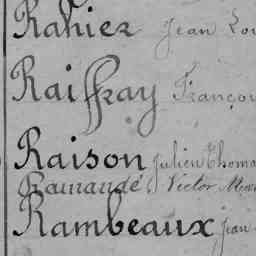 Rahier Jean Lou
Raiffray Françoi
Raison Julien Thoma
Ramandé, Victor
Rambeaux Jean